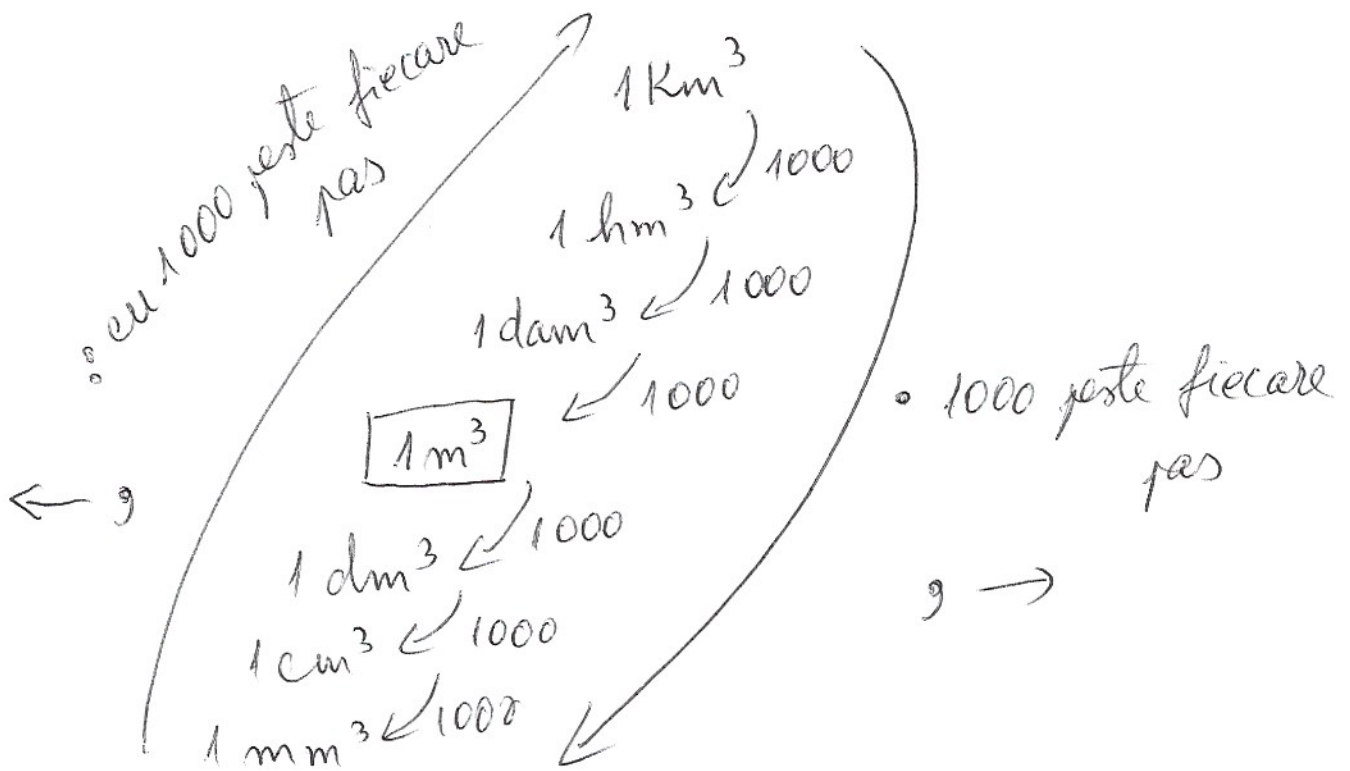 : cu 1000 peste fiecare
pas
1 Km³
1000
1 hm³
1000
1 dam³
1000
1 m³
1000
1 dm³
1000
1 cm³
1000
1 mm³
· 1000 peste fiecare
pas
← ,
, →